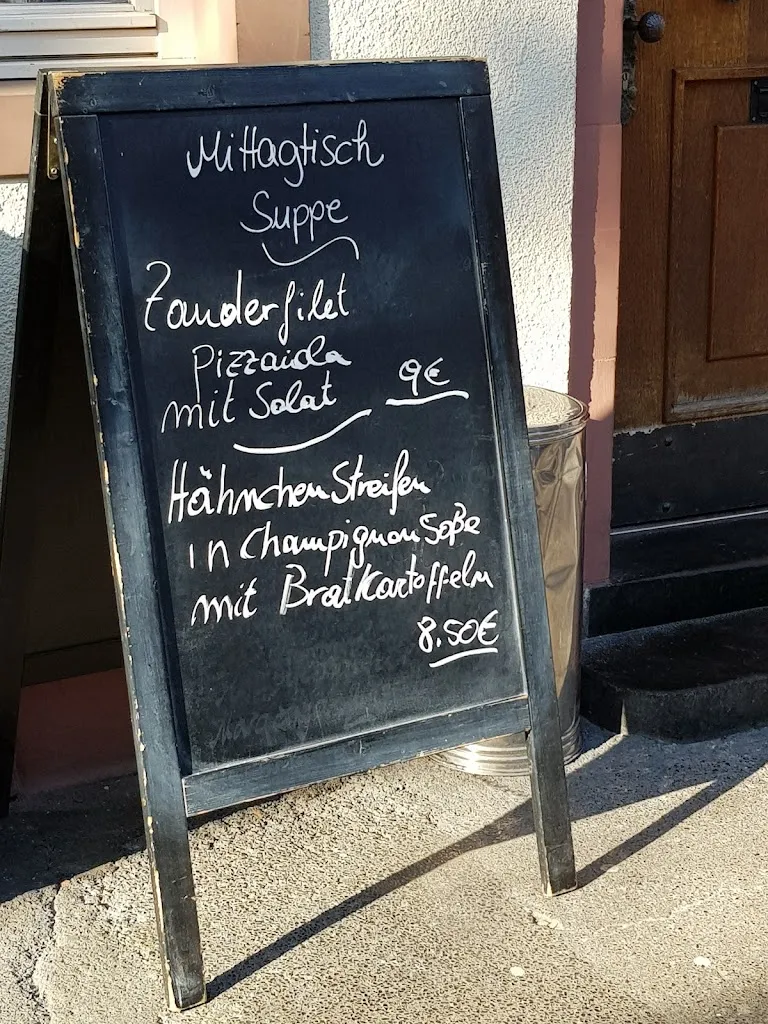 Mittagtisch
Suppe
Zanderfilet
Pizzaiola
mit Salat 9€
Hähnchen Streifen
in Champignon Soße
mit Bratkartoffeln
8.50€